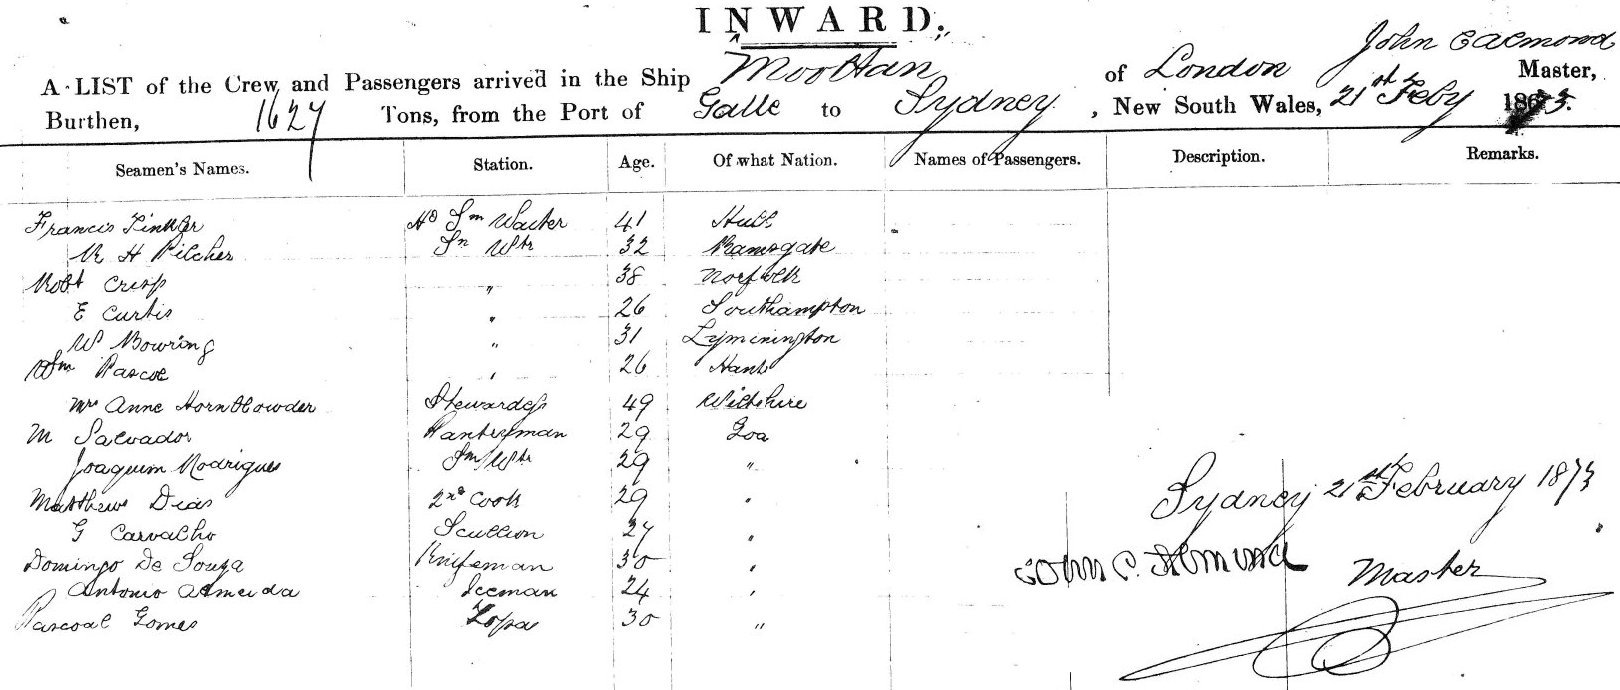 INWARD.
John C Almond
A LIST of the Crew and Passengers arrived in the Ship Mooltan of London Master,
Burthen, 1627 Tons, from the Port of Galle to Sydney, New South Wales, 21st Feby 1873.
Seamen's Names. Station. Age. Of what Nation. Names of Passengers. Description. Remarks.
Francis Tinkler Hd Sm Waiter 41 Hull
R H Pilcher Sn Wtr 32 Ramsgate
Robt Crisp " 38 Norfolk
E Curtis " 26 Southampton
W Bowring " 31 Lyminington
Wm Pascoe " 26 Hants
Mrs Anne Hornblowder Stewardess 49 Wiltshire
M Salvador Pantryman 29 Goa
Joaquim Rodrigues Sm Wtr 29 "
Matthew Dias 2nd Cook 29 "
G Carvalho Scullion 27 "
Domingo De Souza Knifeman 30 "
Antonio Almeida Iceman 24 "
Pascoal Gomes Topas 30 "
Sydney 21st February 1873
John C. Almond Master